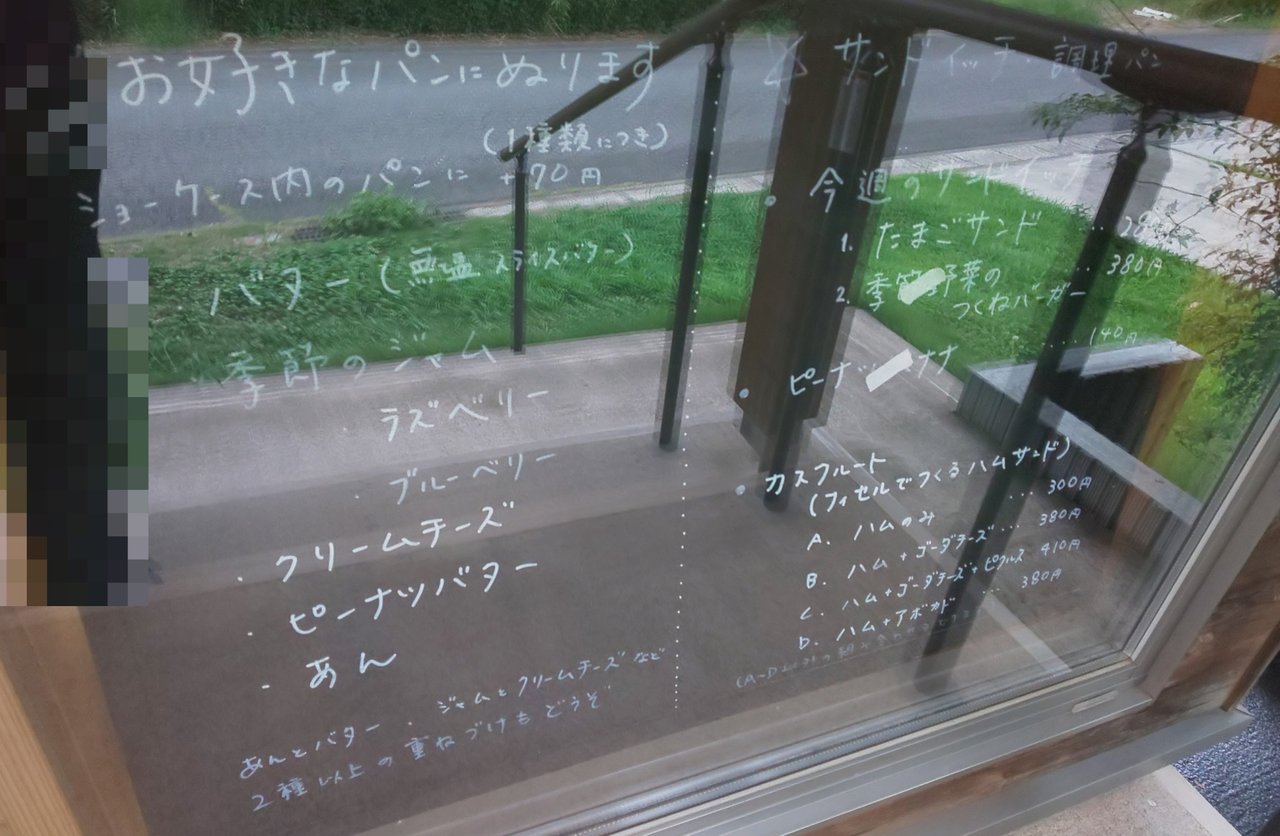 お好きなパンにぬります
(1種類につき)
ショーケース内のパンに +70円
バター(無塩 スライスバター)
季節のジャム
・ラズベリー
・ブルーベリー
・クリームチーズ
・ピーナツバター
・あん
あんとバター・ジャムとクリームチーズなど
2種以上の重ねづけもどうぞ
サンドイッチ・調理パン
• 今週のサンドイッチ
1. たまごサンド
2. 季節野菜の ... 380円
つくねバーガー
• ピーナッ ... 140円
• カスクルート
(フィセルでつくるハムサンド)
A. ハムのみ ... 300円
B. ハム+ゴーダチーズ... 380円
C. ハム+ゴーダチーズ+ピクルス 410円
D. ハム+アボカド ... 380円